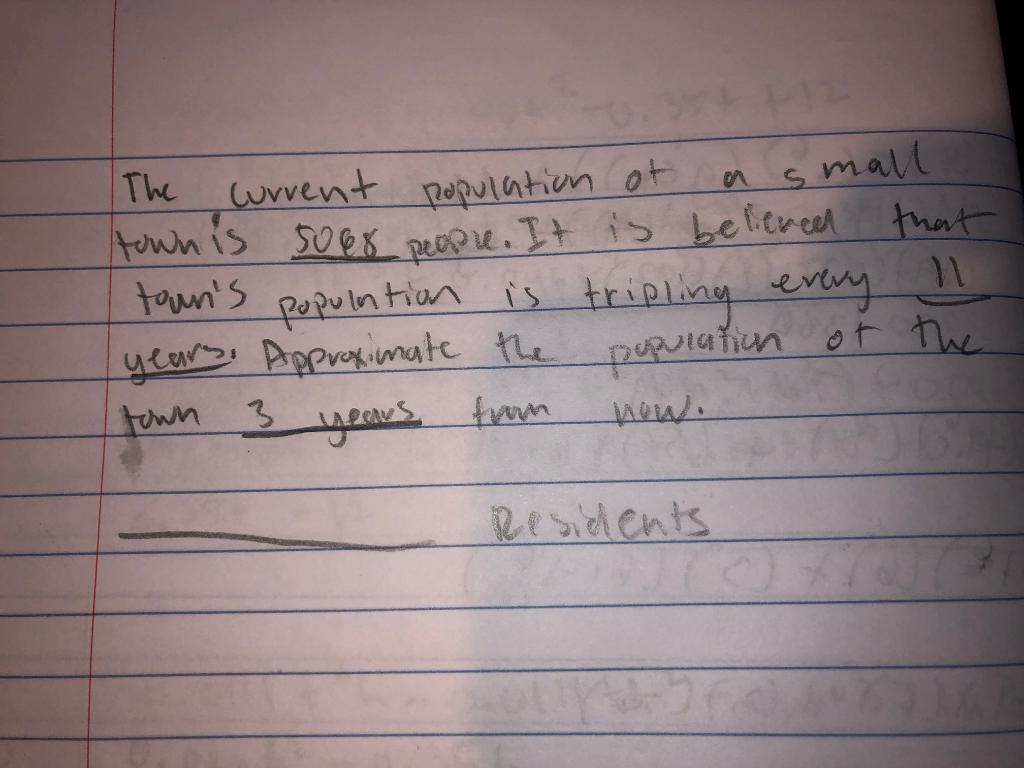 The current population of a small
town is 5068 people. It is believed that
town's population is tripling every 11
years. Approximate the population of the
town 3 years from now.
Residents